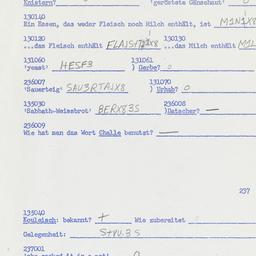 Knistern?
'geröstete Gänsehaut'
130140
Ein Essen, das weder Fleisch noch Milch enthält, ist M1N1X8
130120 130130
...das Fleisch enthält FLAISHIX8 ...das Milch enthält M1L
131060 131061
'yeast' HESF3 ) Gerbe? 0
236007 131070
'Sauerteig' SAU3RTAIX8 ) Urhab? 0
135030 236008
'Sabbath-Weissbrot' BERX83S )Datscher? —
236009
Wie hat man das Wort Challe benutzt? —
237
135040
Kouleisch: bekannt? + Wie zubereitet
Gelegenheit: S+VU.3S
237001